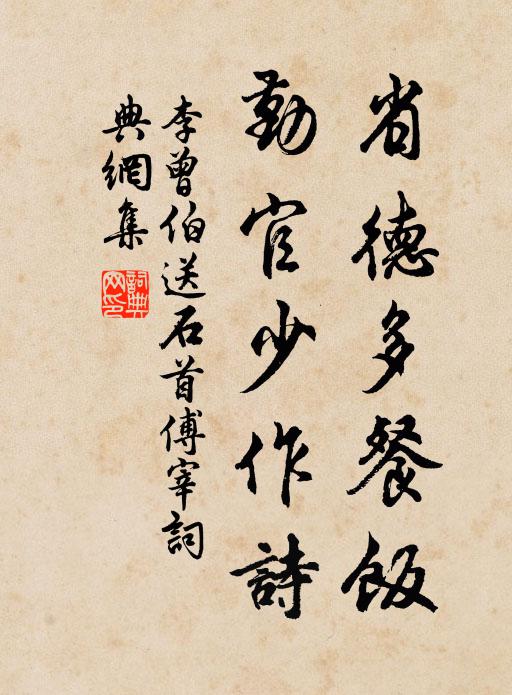 省德多餐飯
勤官少作詩
李曾伯送石首傅宰詞
典網集
詞典网印